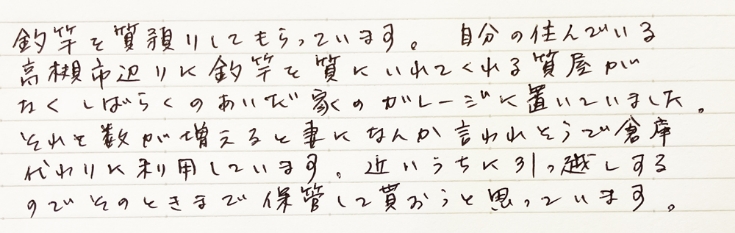 釣竿を質預りしてもらっています。自分の住んでいる
高槻市辺りに釣竿を質にいれてくれる質屋が
なくしばらくのあいだ家のガレージに置いていました。
それも数が増えると妻になんか言われそうで倉庫
代わりに利用しています。近いうちに引っ越しする
のでそのときまで保管して貰おうと思っています。